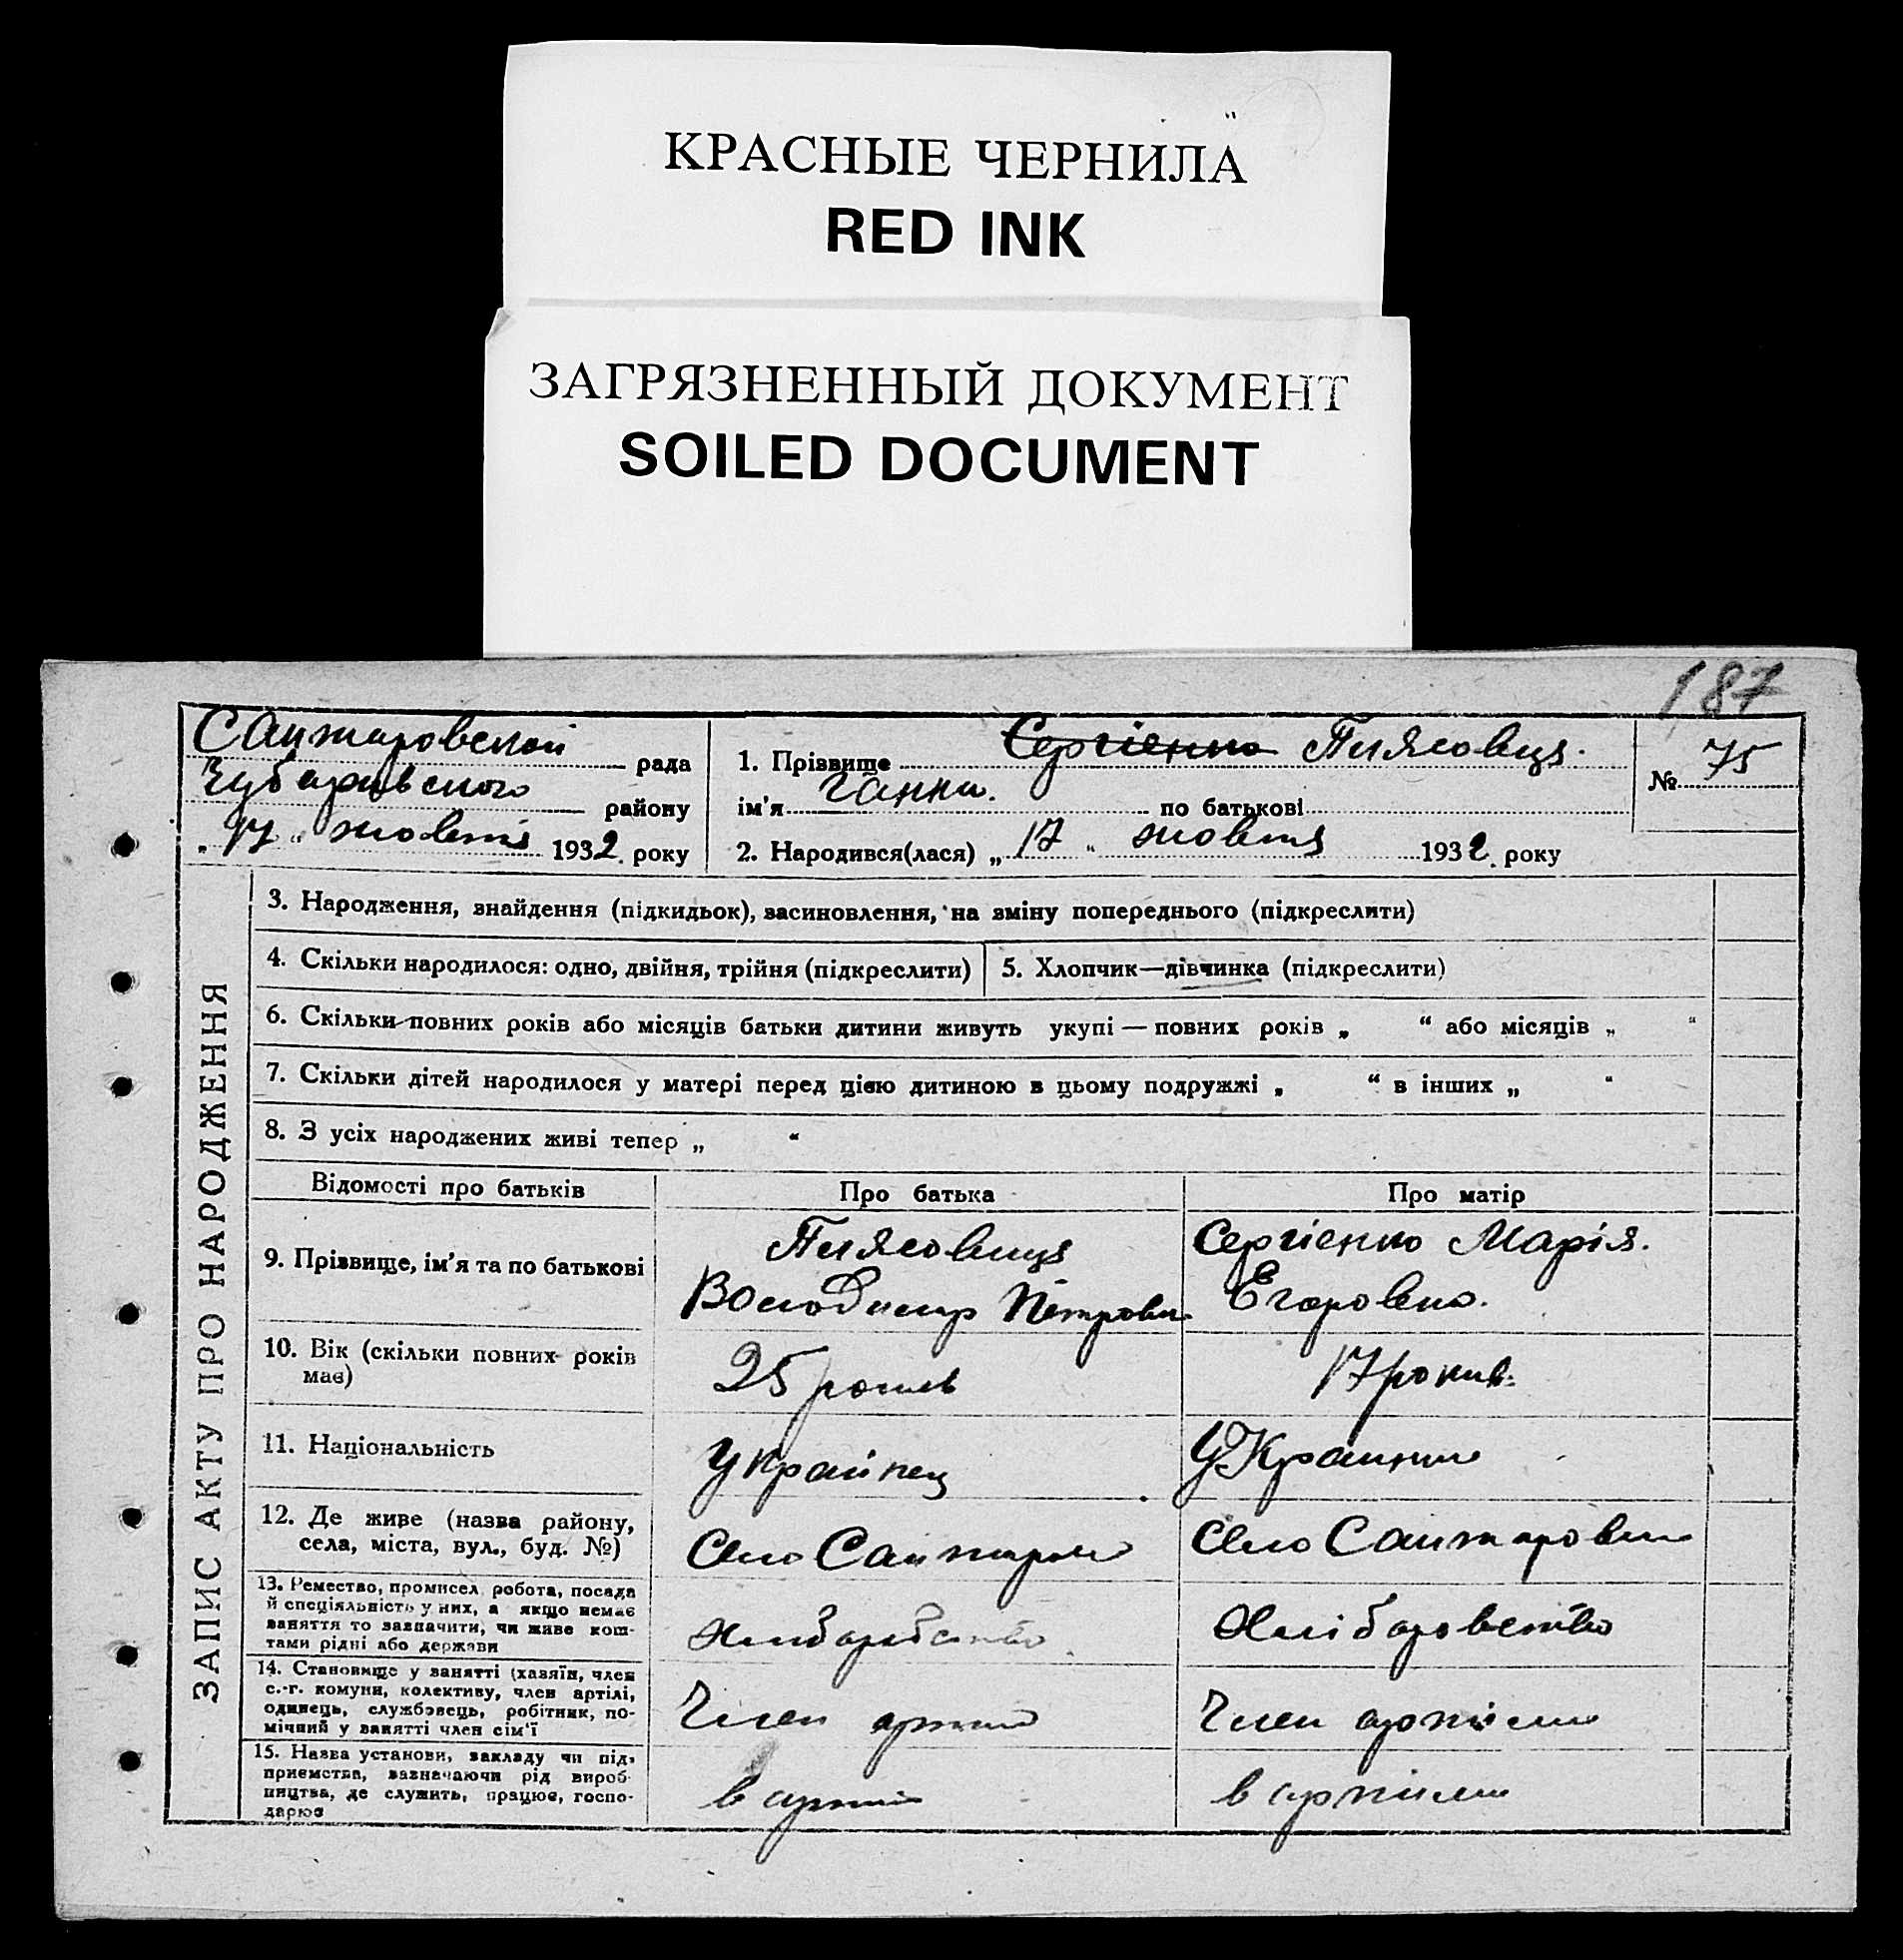 КРАСНЫЕ ЧЕРНИЛА
RED INK
ЗАГРЯЗНЕННЫЙ ДОКУМЕНТ
SOILED DOCUMENT
187
рада
району
„17“ 1932 року
1. Прізвище Сергіенко
ім'я Ганна. по батькові
2. Народився(лася) „17“ жовтня 1932 року
№ 75
ЗАПИС АКТУ ПРО НАРОДЖЕННЯ
3. Народження, знайдення (підкидьок), засиновлення, на зміну попереднього (підкреслити)
4. Скільки народилося: одно, двійня, трійня (підкреслити)
5. Хлопчик—дівчинка (підкреслити)
6. Скільки повних років або місяців батьки дитини живуть укупі — повних років „ “ або місяців „ “
7. Скільки дітей народилося у матері перед цією дитиною в цьому подружжі „ “ в інших „ “
8. З усіх народжених живі тепер „ “
Відомості про батьків
Про батька
Про матір
9. Прізвище, ім'я та по батькові
Володимир
Сергіенко Марія.
Егоровна.
10. Вік (скільки повних років
має)
25 років
17 років
11. Національність
Украінец
Украинка
12. Де живе (назва району,
села, міста, вул., буд. №)
Село
Село
13. Ремество, промисел, робота, посада
й спеціяльність у них, а якщо немає
заняття то зазначити, чи живе кош-
тами рідні або держави
14. Становище у занятті (хазяїн, член
с.-г. комуни, колективу, член артілі,
одинець, службовець, робітник, по-
мічний у занятті член сім'ї
Член
Член артіли
15. Назва установи, закладу чи під-
приємства, зазначаючи рід вироб-
ництва, де служить, працює, госпо-
дарює
в
в артіли